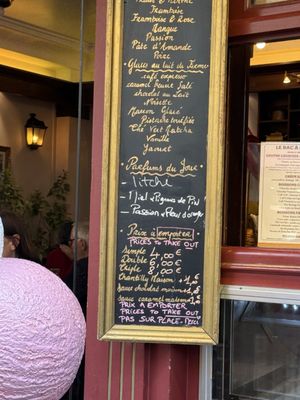 Framboise
Framboise & Rose
Mangue
Passion
Pâte d'Amande
Poire
Glaces au lait de Ferme
café expresso
caramel beurre Salé
chocolat au Lait
Noisette
Marron Glacé
Pistache torréfiée
Thé Vert Matcha
Vanille
Yaourt
Parfums du Jour
- Litchi
- Miel & Pignons de Pin
- Passion & Fleur d'oranger
Prix à emporter
PRICES TO TAKE OUT
Simple 4,00€
Double 6,00€
Triple 8,00€
Chantilly Maison
Sauce chocolat maison
Sauce caramel maison
PRIX A EMPORTER
PRICES TO TAKE OUT
PAS SUR PLACE. MERCI
LE BAC À